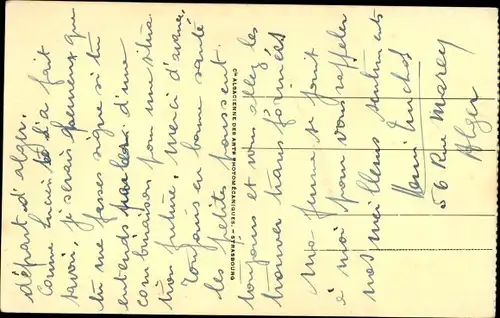 départ d'alger.
Comme Lucien te l'a fait
savoir, je serais heureux que
tu me fasses signe si tu
entends parler d'une
combinaison pour une situa
tion future, merci d'avance.
Toujours en bonne santé
les petits poussent
toujours et vous allez les
trouver transformés
Ma femme se joint
à moi pour vous rappeler
nos meilleurs sentiments
56 Rue Marey
Alger
Cie ALSACIENNE DES ARTS PHOTOMÉCANIQUES. - STRASBOURG